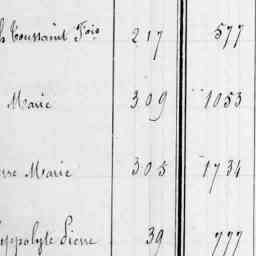 Toussaint Fois 217 577
Marie 309 1053
Marie 305 1734
Hippolyte Pierre 39 777